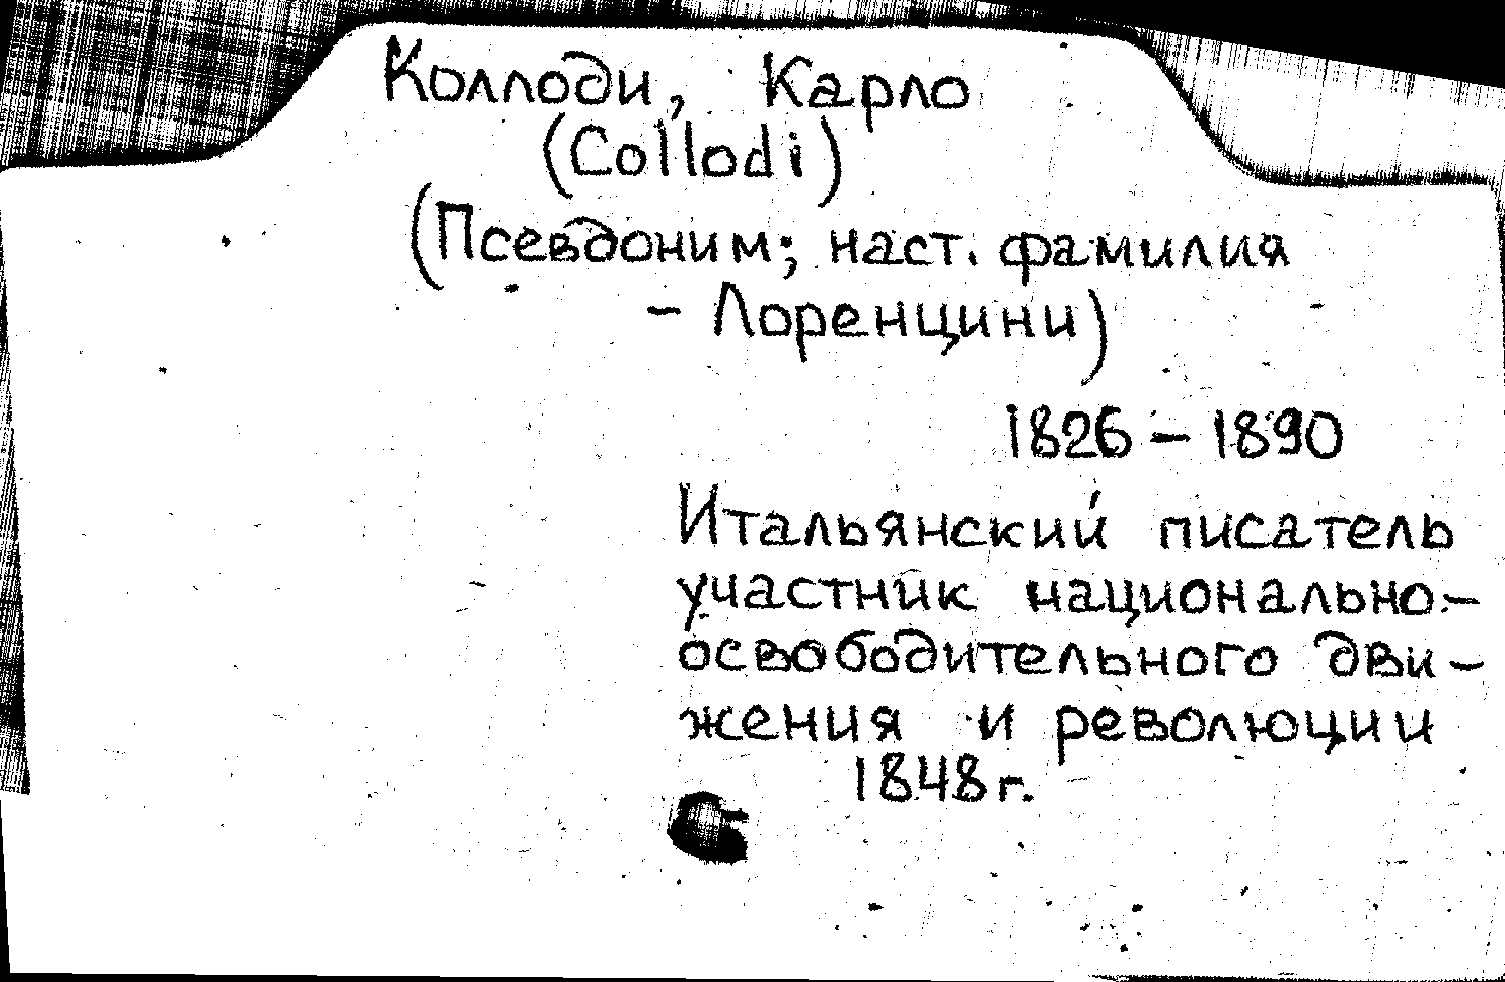 Коллоди, Карло
(Collodi)
(Псевдоним; наст. фамилия
- Лоренцини)
1826 – 1890
Итальянский писатель
участник национально-
освободительного дви-
жения и революции
1848 г.